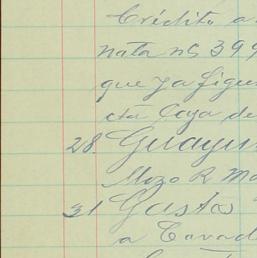 Crédito a
nata nº 399
que ya figu
cta Caja de
28. Guayu
Mozo R Ma
31 Gastos
a Cavad